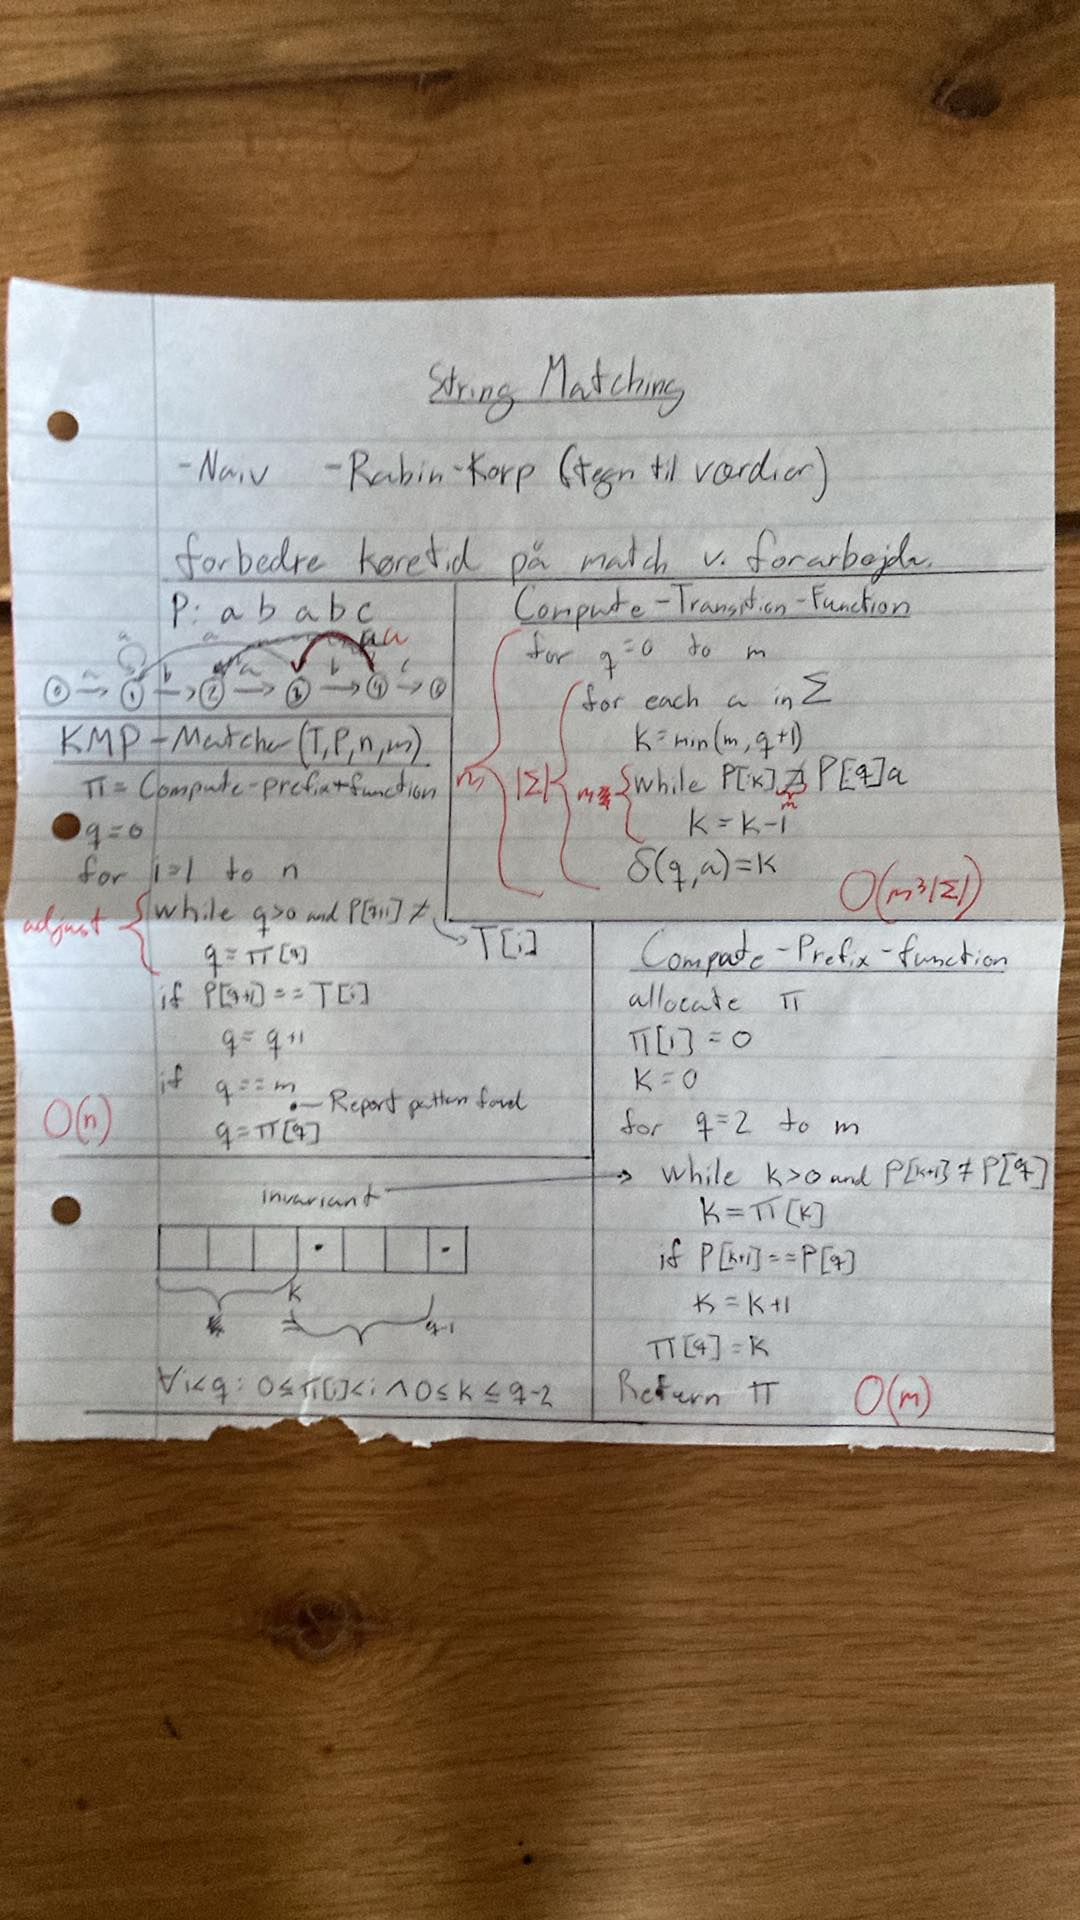 String Matching
-Naiv -Rabin-Korp (tegn til værdier)
forbedre køretid på match v. forarbejde.
P: a b a b c
a a a a
a b a b c
0 → 1 → 2 → 3 → 4 →
KMP-Matcher(T,P,n,m)
π = Compute-prefix-function
q=0
for i=1 to n
adjust while q>0 and P[q+1] ≠
T[i]
q=π[q]
if P[q+1]==T[i]
q=q+1
if q==m
Report pattern found
q=π[q]
O(n)
Compute-Transition-Function
for q=0 to m
for each a in Σ
K=min(m, q+1)
m |Σ| m while P[:k] ⊐ P[:q]a
m
K=K-1
δ(q,a)=K
O(m³|Σ|)
Compute-Prefix-function
allocate π
π[1]=0
K=0
for q=2 to m
while k>0 and P[k+1]≠P[q]
K=π[K]
if P[k+1]==P[q]
K=K+1
π[q]=K
Return π O(m)
invariant
K
q-1
∀i<q: 0≤π[i]<i ∧ 0≤k≤q-2